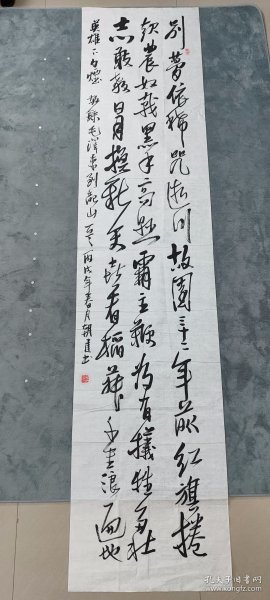 别夢依稀咒逝川故園三十二年前红旗捲
起農奴戟黑手高悬霸主鞭为有犠牲多壮
志敢教日月换新天喜看稻菽千重浪遍地
英雄下夕烟 毛泽東到韶山 丙戌年春月 书
孔夫子旧书网